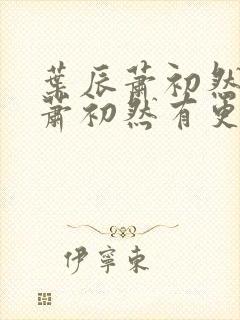 葉辰蕭初然
蕭初然有更
伊寧東